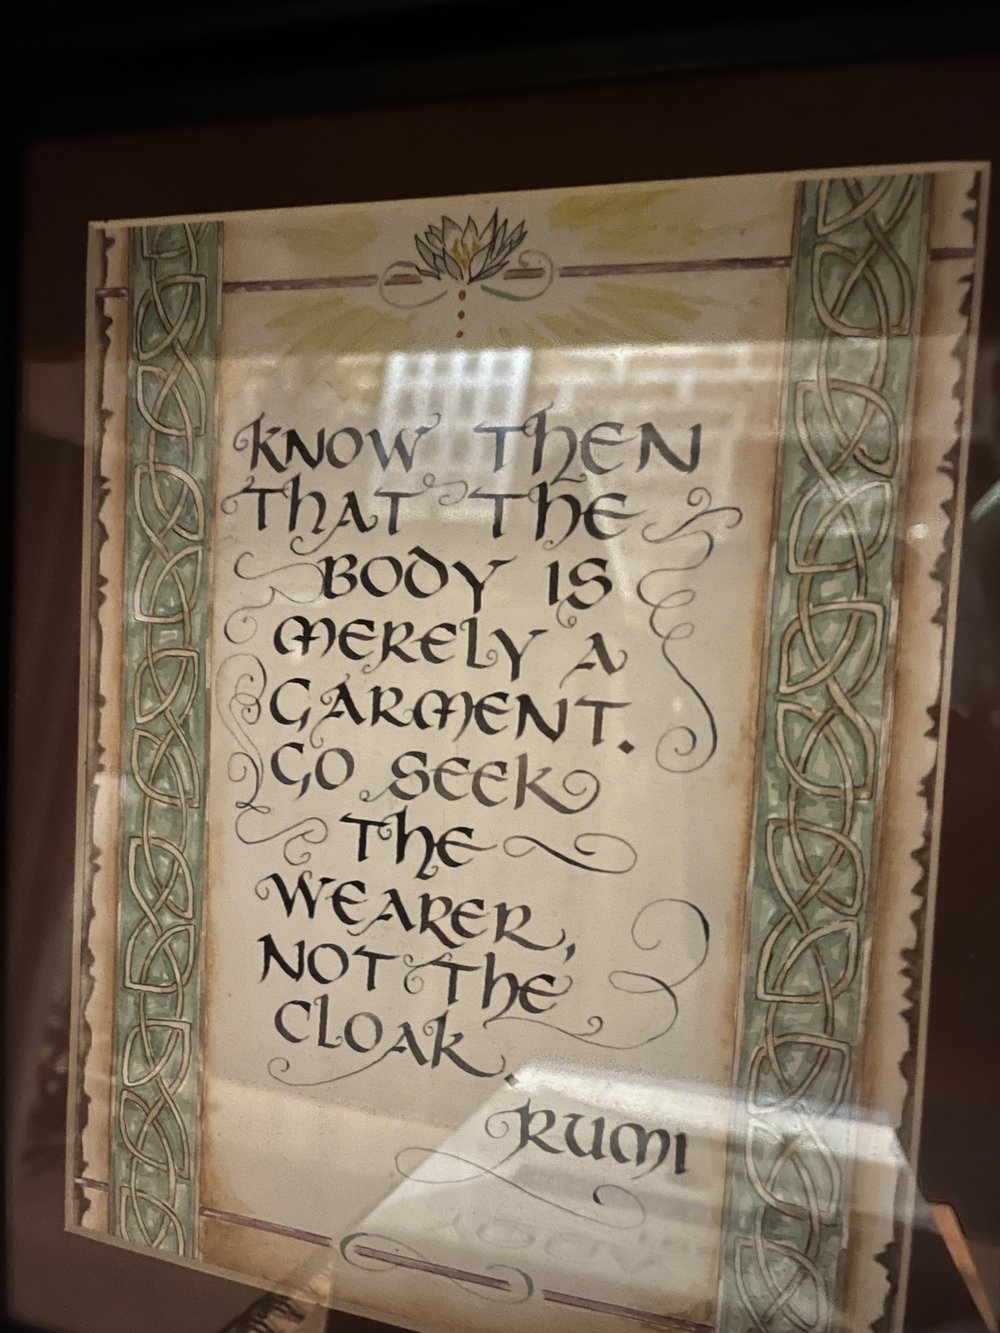 KNOW THEN
THAT THE
BODY IS
MERELY A
GARMENT.
GO SEEK
THE
WEARER,
NOT THE
CLOAK.
RUMI